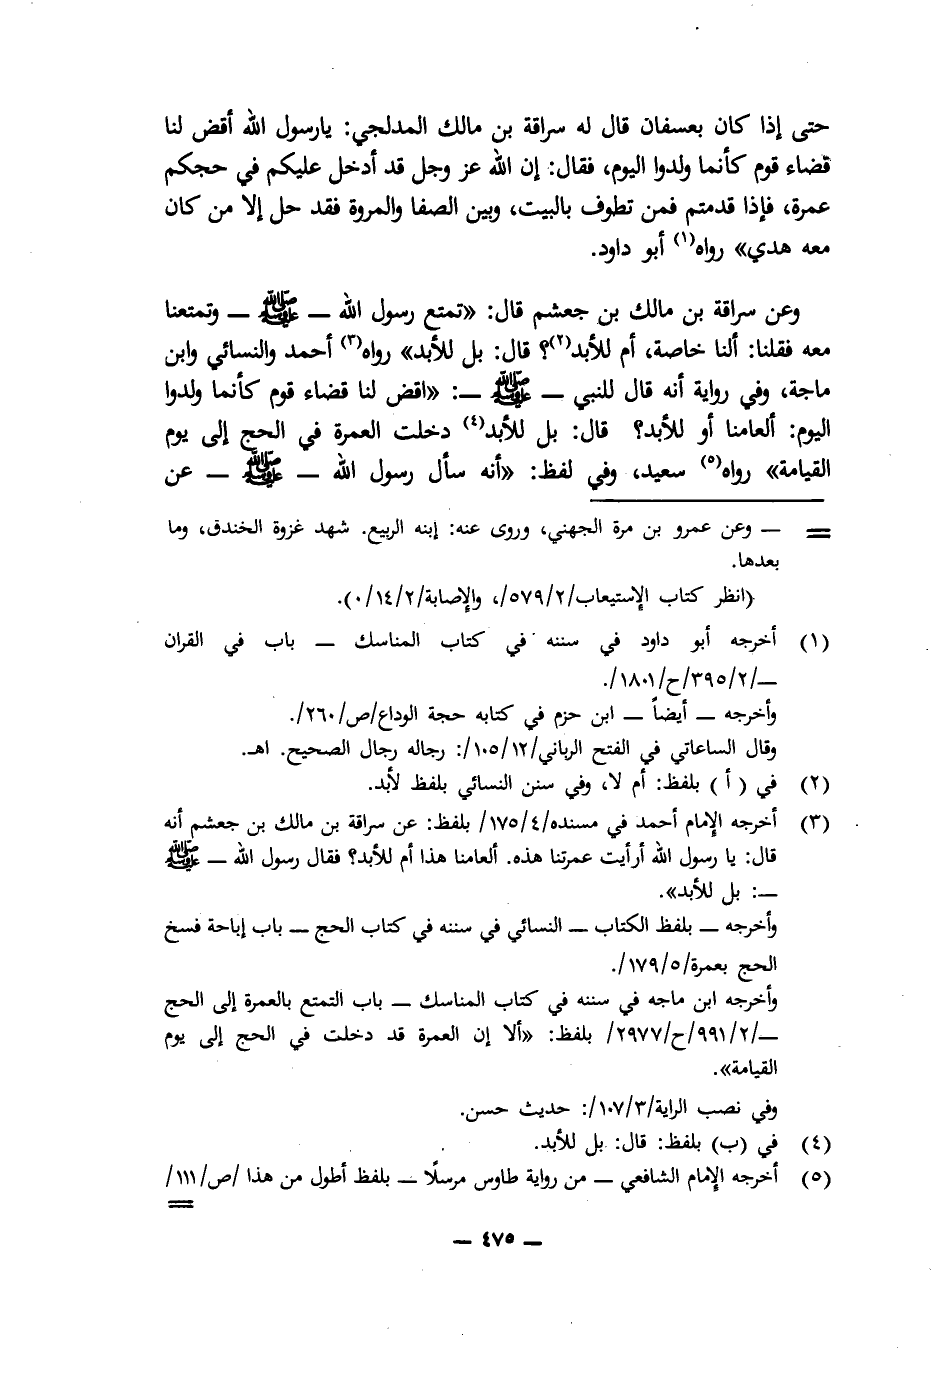 حتى إذا كان بعسفان قال له سراقة بن مالك المدلجي: يارسول الله أقض لنا
قضاء قوم كأنما ولدوا اليوم، فقال: إن الله عز وجل قد أدخل عليكم في حجكم
عمرة، فإذا قدمتم فمن تطوف بالبيت، وبين الصفا والمروة فقد حل إلا من كان
معه هدي» رواه(١) أبو داود.
وعن سراقة بن مالك بن جعشم قال: «تمتع رسول الله — ﷺ — وتمتعنا
معه فقلنا: ألنا خاصة، أم للأبد(٢)؟ قال: بل للأبد» رواه(٣) أحمد والنسائي وابن
ماجة، وفي رواية أنه قال للنبي — ﷺ —: «اقض لنا قضاء قوم كأنما ولدوا
اليوم: ألعامنا أو للأبد؟ قال: بل للأبد(٤) دخلت العمرة في الحج إلى يوم
القيامة» رواه(٥) سعيد، وفي لفظ: «أنه سأل رسول الله — ﷺ — عن
= — وعن عمرو بن مرة الجهني، وروى عنه: إبنه الربيع. شهد غزوة الخندق، وما
بعدها.
(انظر كتاب الإستيعاب/٥٧٩/٢/، والإصابة/١٤/٢/٠).
(١) أخرجه أبو داود في سننه في كتاب المناسك — باب في القران
—/٣٩٥/٢/ح/١٨٠١/.
وأخرجه — أيضاً — ابن حزم في كتابه حجة الوداع/ص/٢٦٠/.
وقال الساعاتي في الفتح الرباني/١٠٥/١٢/: رجاله رجال الصحيح. اهـ.
(٢) في ( أ ) بلفظ: أم لا، وفي سنن النسائي بلفظ لأبد.
(٣) أخرجه الإمام أحمد في مسنده/١٧٥/٤/ بلفظ: عن سراقة بن مالك بن جعشم أنه
قال: يا رسول الله أرأيت عمرتنا هذه. ألعامنا هذا أم للأبد؟ فقال رسول الله — ﷺ
—: بل للأبد».
وأخرجه — بلفظ الكتاب — النسائي في سننه في كتاب الحج — باب إباحة فسخ
الحج بعمرة/١٧٩/٥/.
وأخرجه ابن ماجه في سننه في كتاب المناسك — باب التمتع بالعمرة إلى الحج
—/٩٩١/٢/ح/٢٩٧٧/ بلفظ: «ألا إن العمرة قد دخلت في الحج إلى يوم
القيامة».
وفي نصب الراية/١٠٧/٣/: حديث حسن.
(٤) في (ب) بلفظ: قال: بل للأبد.
(٥) أخرجه الإمام الشافعي — من رواية طاوس مرسلًا — بلفظ أطول من هذا /ص/١١١/
=
— ٤٧٥ —